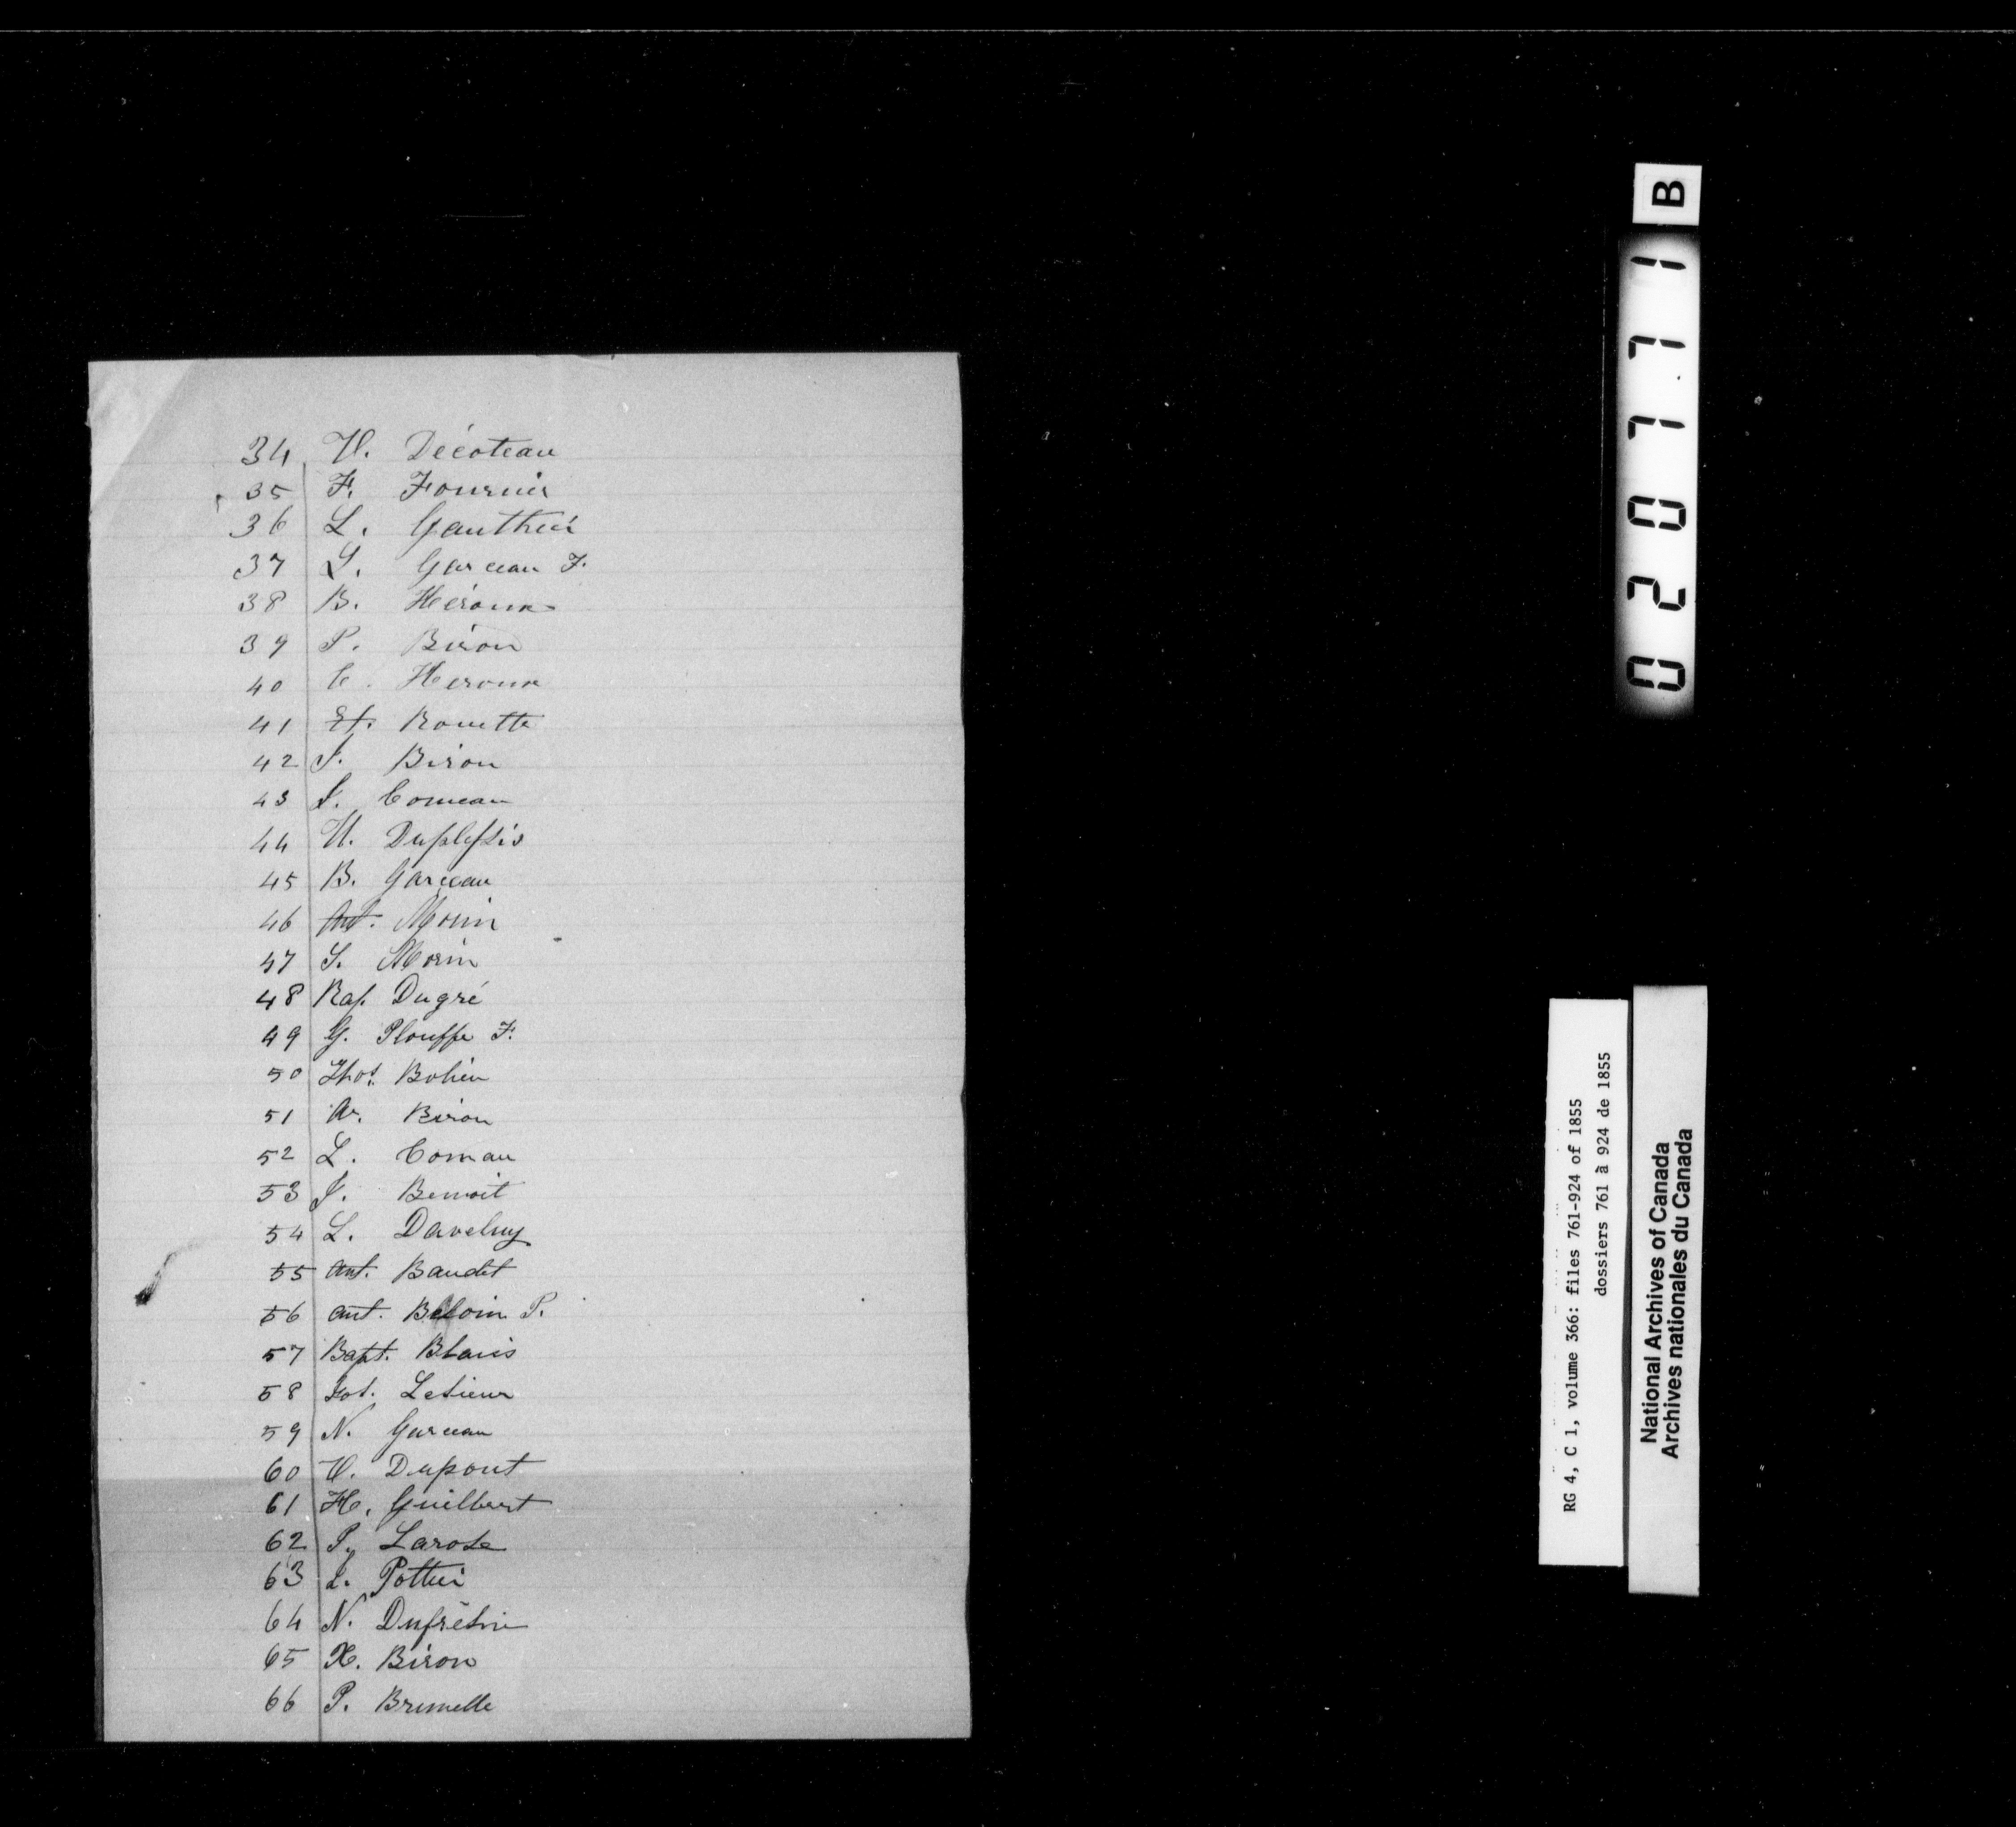 34 U. Décoteau
35 F. Fournier
36 L. Gauthier
37 L. Garceau F.
38 B. Héroux
39 P. Biron
40 C. Heroux
41 Et. Rouette
42 J. Biron
43 J. Comeau
44 U. Duplessis
45 B. Garceau
46 Ant. Morin
47 S. Morin
48 Rap. Dugré
49 G. Plouffe F.
50 Thos. Bolieu
51 Ar. Biron
52 L. Comau
53 J. Benoit
54 L. Daveluy
55 Ant. Baudet
56 Ant. P.
57 Bapt. Blais
58 Jos. Lesieur
59 N. Garceau
60 U. Dupont
61 H. Guilbert
62 P. Larose
63 L. Pottier
64 N. Dufrêsne
65 X. Biron
66 P. Brunelle
020771 B
RG 4, C 1, volume 366: files 761-924 of 1855
dossiers 761 à 924 de 1855
National Archives of Canada
Archives nationales du Canada